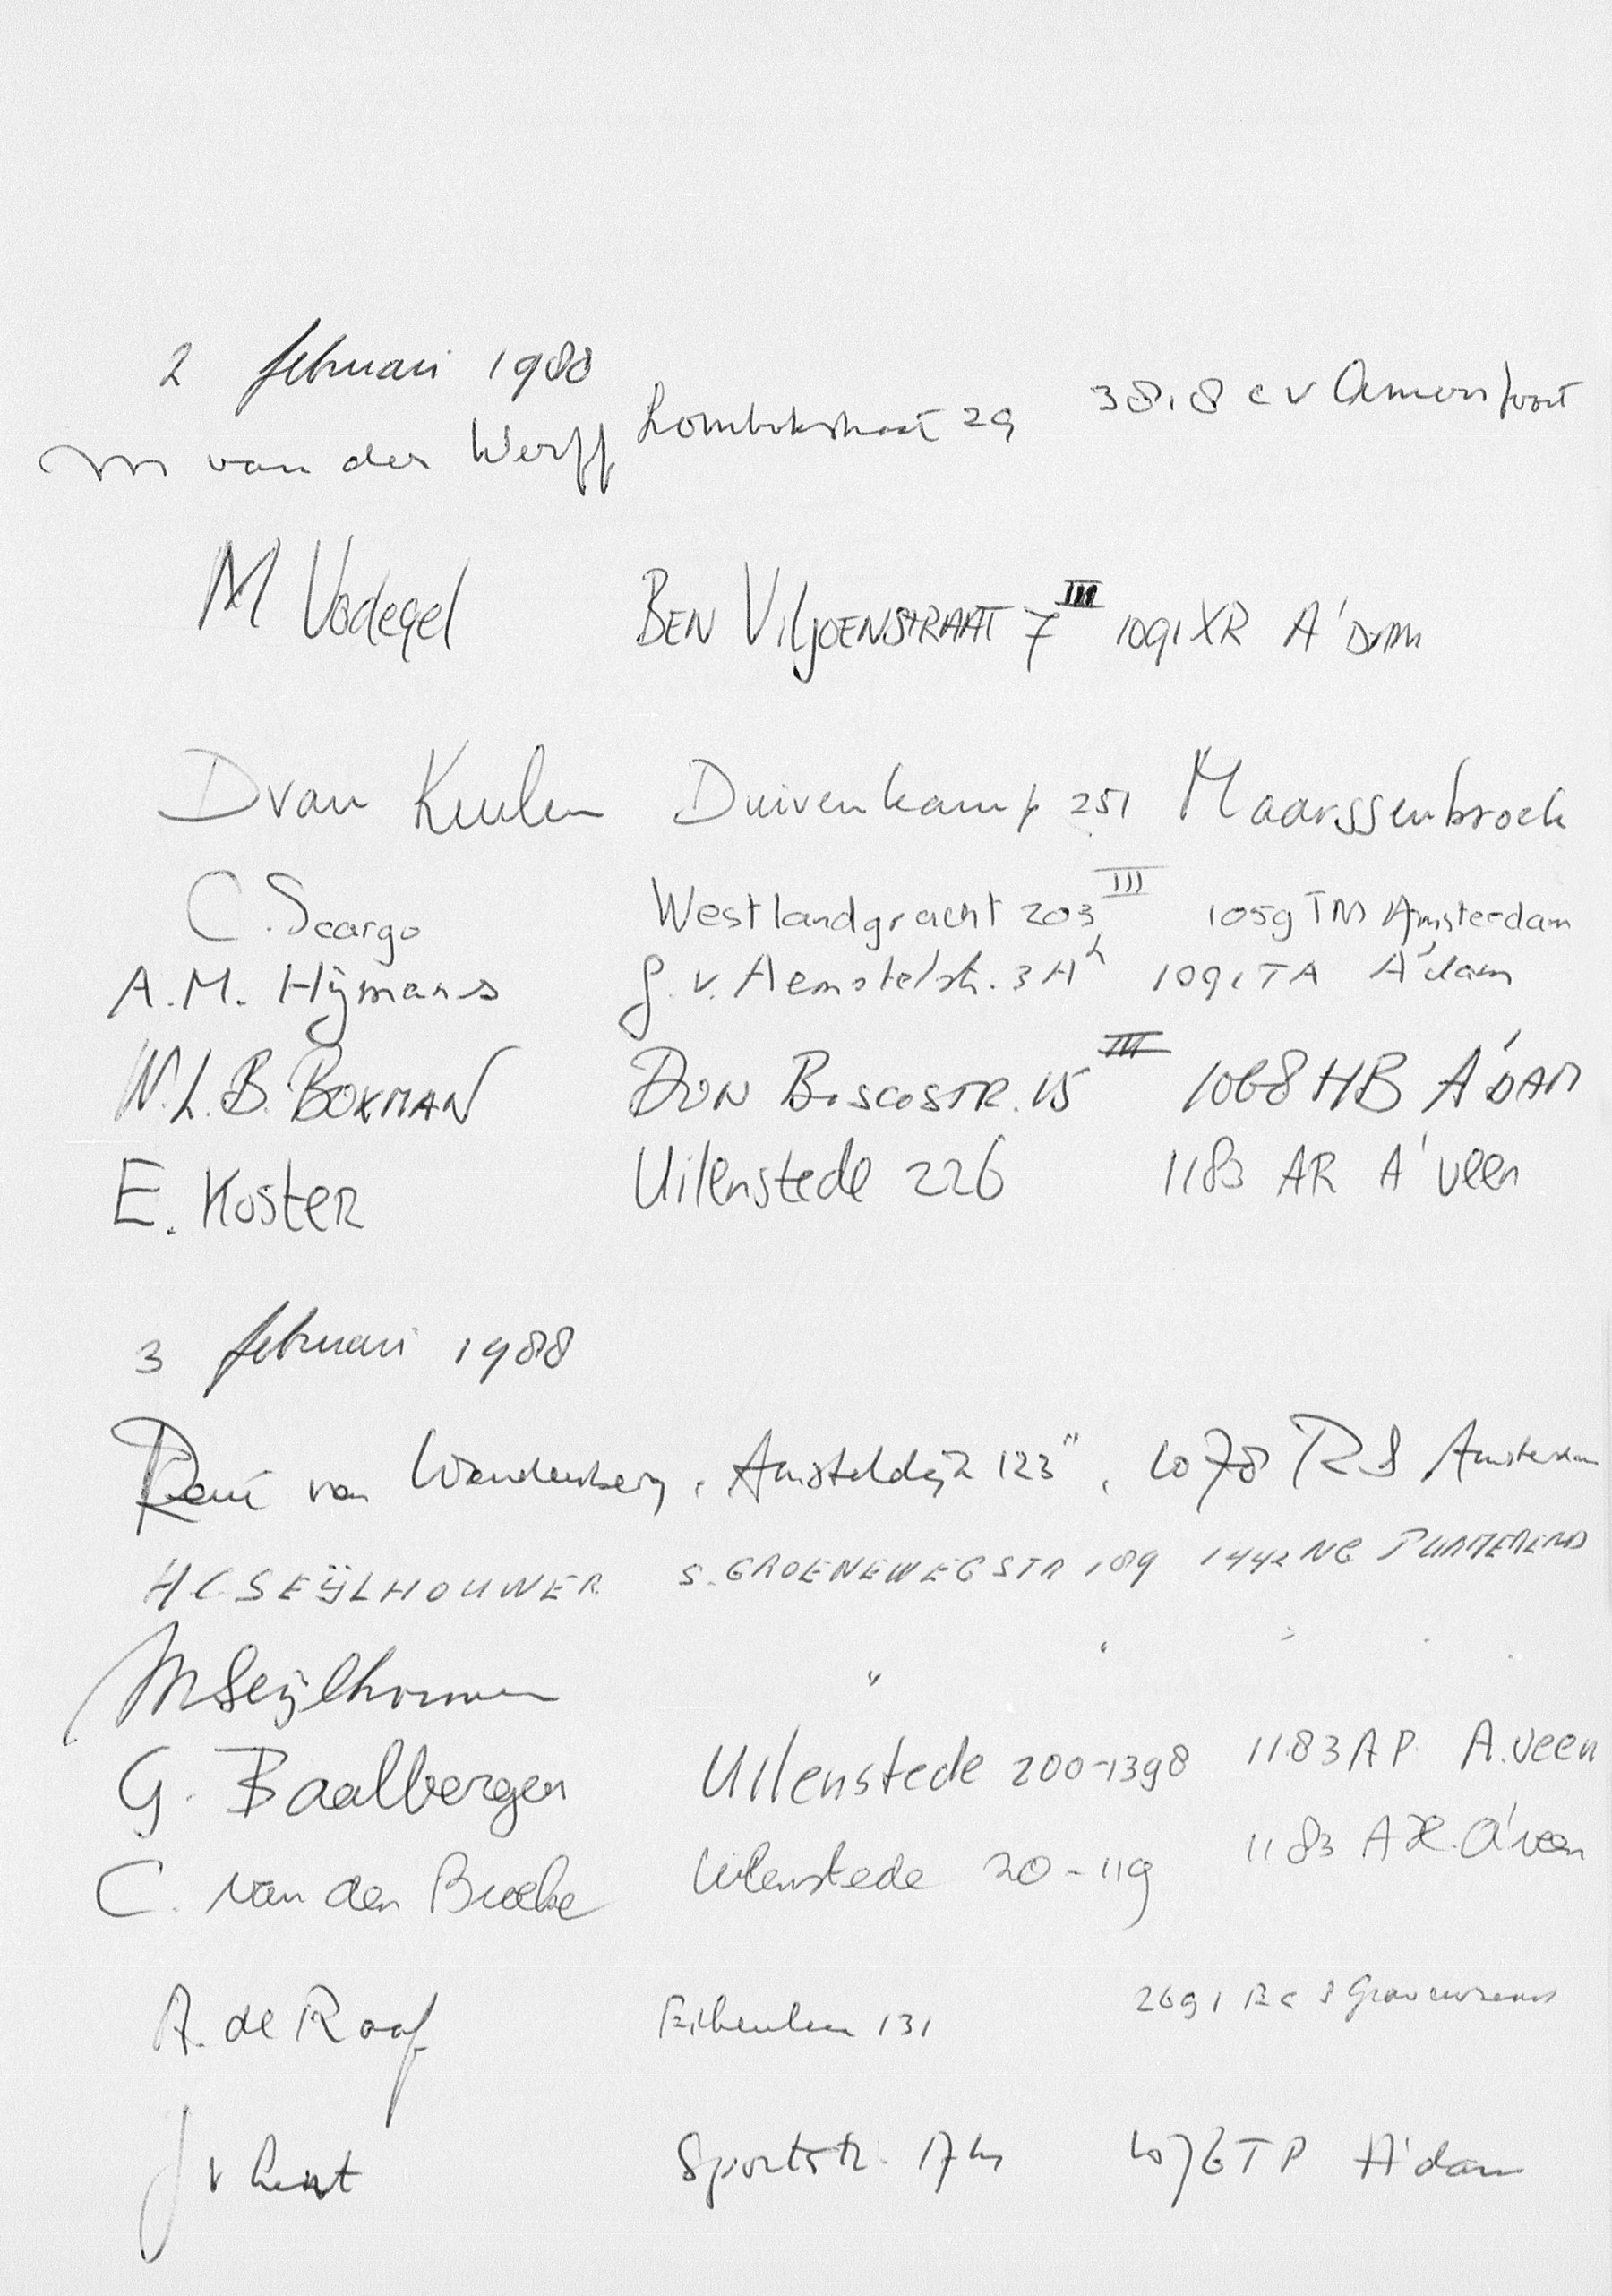 2 februari 1988
M van der Werff Lombokstraat 29 3818 CV Amersfoort
M Vodegel BEN VILJOENSTRAAT 7 III 1091 XR A'DAM
D van Keulen Duivenkamp 251 Maarssenbroek
C. Scargo Westlandgracht 203 III 1059 TM Amsterdam
A.M. Hijmans G. v. Aemstelstr. 3 H 1091 TA A'dam
W.L.B. BOXMAN DON BOSCOSTR. 15 III 1068 HB A'DAM
E. KOSTER Uilenstede 226 1183 AR A'veen
3 februari 1988
René van , Amsteldijk 123", 1078 RS Amsterdam
H C SEIJLHOUWER S. GROENEWEGSTR 189 1442 NG PURMEREND
M Seijlhouwer " " " "
G. Baalbergen Uilenstede 200-1398 1183 AP A.veen
C. van den Broeke Uilenstede 20-119 1183 A A'veen
A. de Raaf 131 2691 's Gravenzande
J v Lent Sportstr. 17 hs 1076 TP A'dam